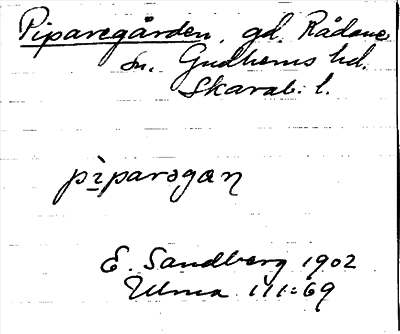 Piparegården, gd. Rådene
sn. Gudhems hd.
Skarab. l.
pìparəgan
E. Sandberg 1902
Ulma 111:69